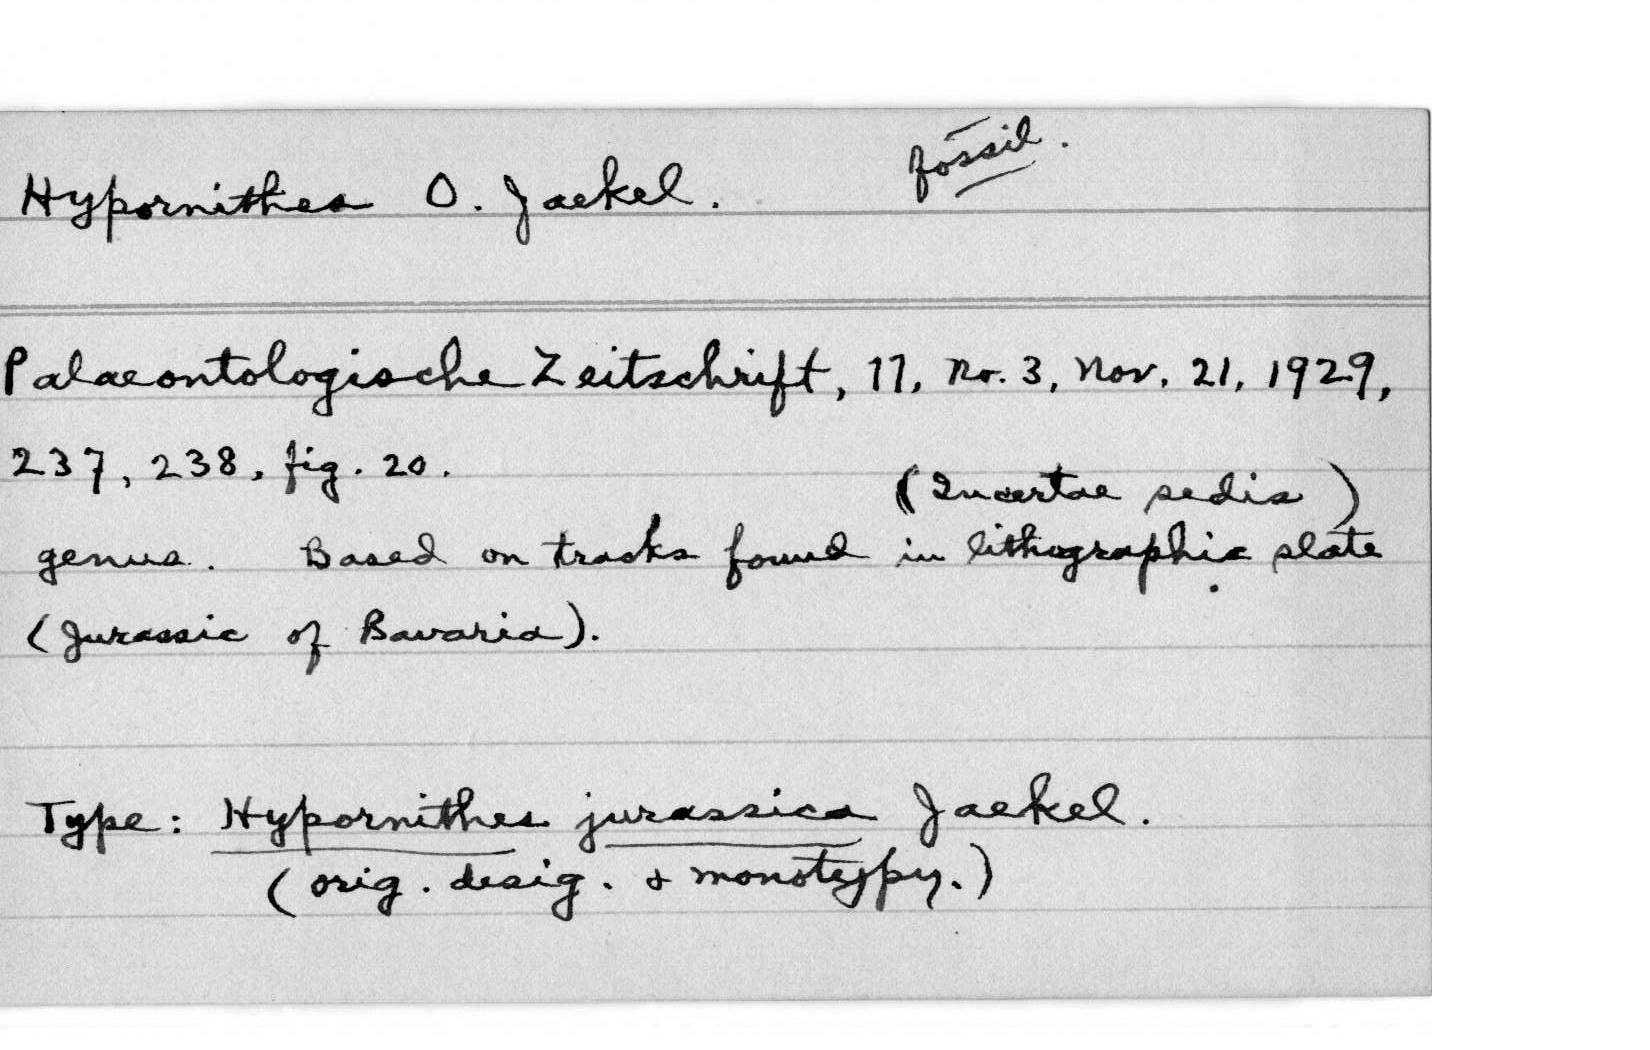 fossil.
Hypornithes O. Jaekel.
Palaeontologische Zeitschrift, 11, no. 3, Nov. 21, 1929,
237, 238, fig. 20.
(Incertae sedis)
genus. Based on tracks found in lithographic slate
(Jurassic of Bavaria).
Type: Hypornithes jurassica Jaekel.
(orig. desig. & monotypy.)